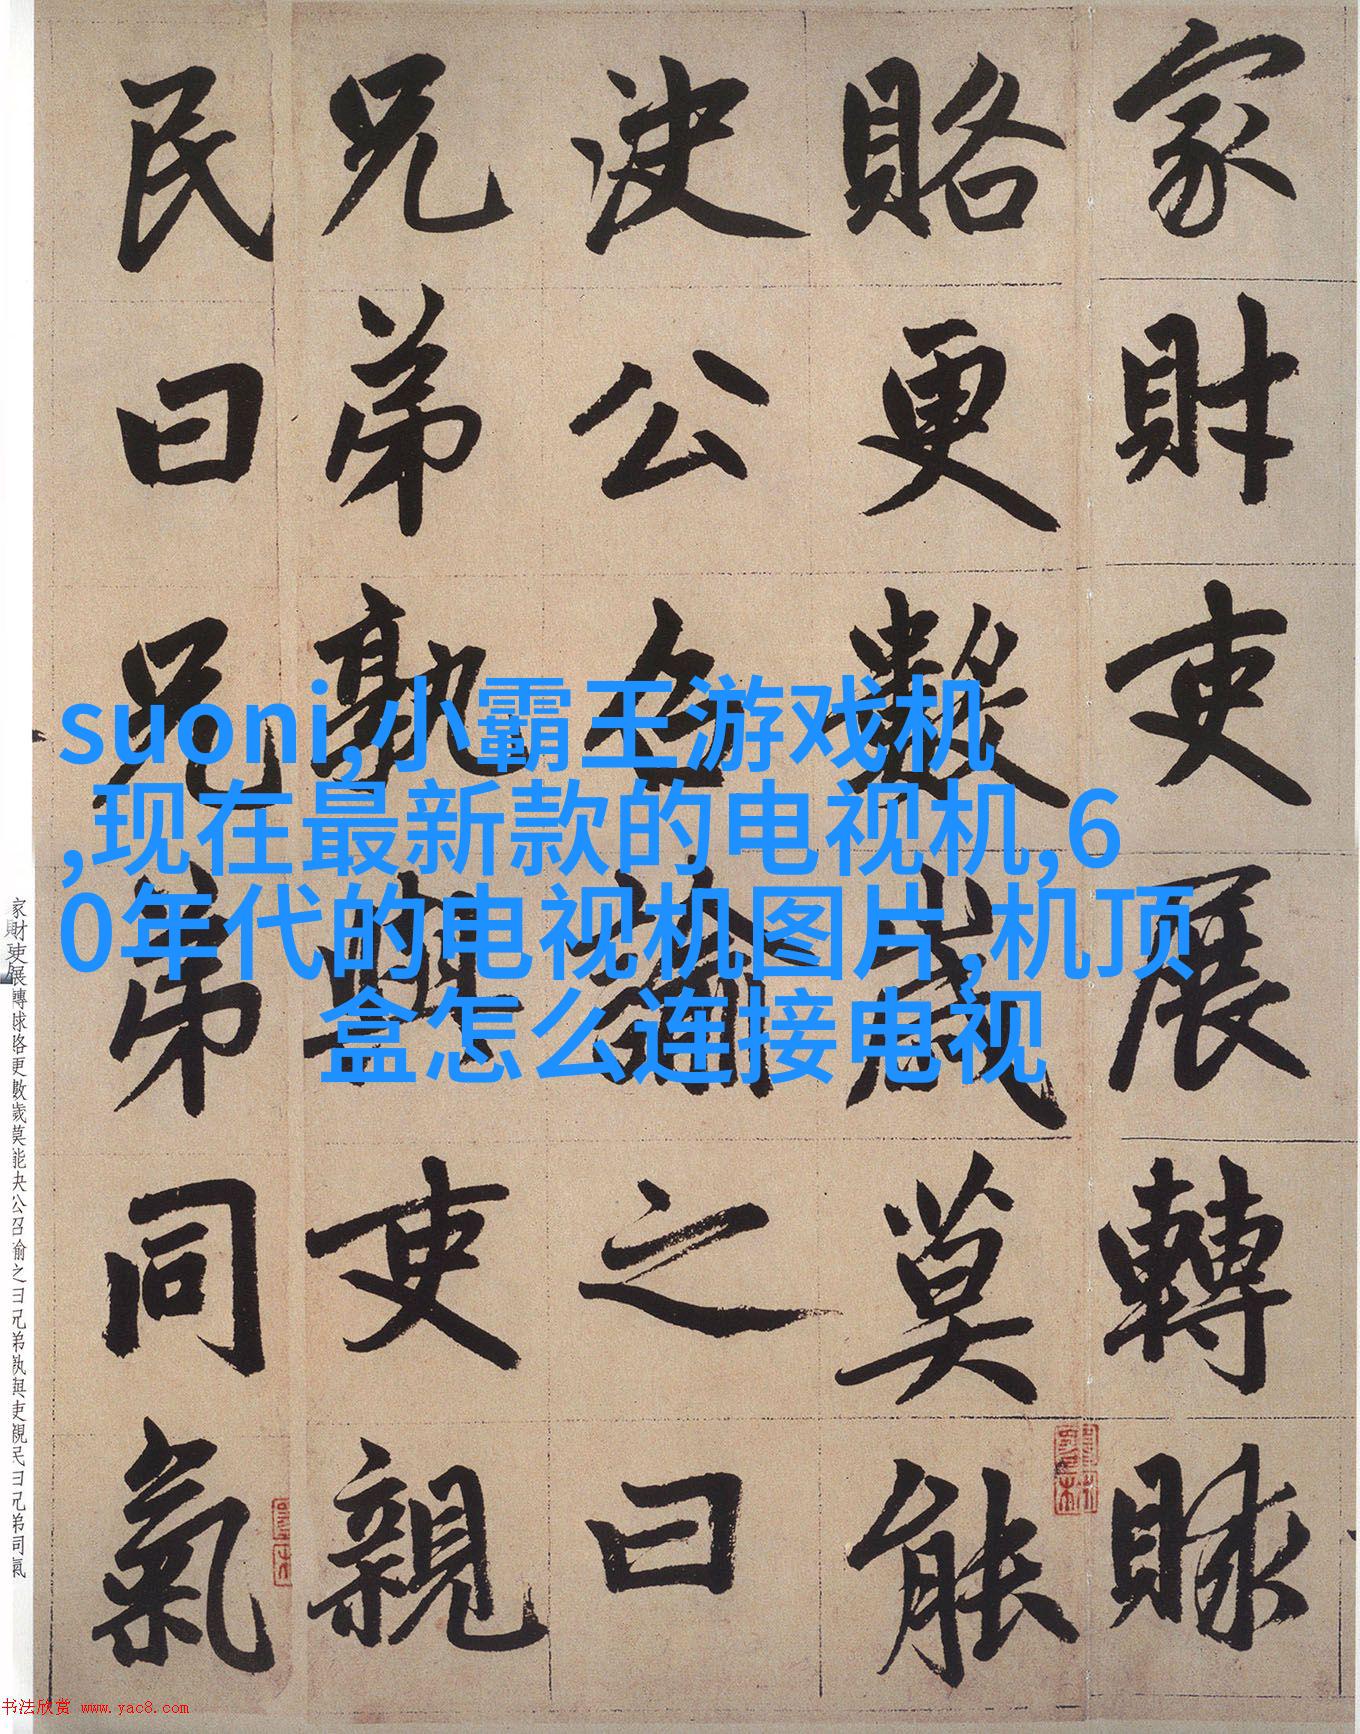 家財吏展轉賕
賂更數歲莫能
决公召諭之曰
兄弟孰與吏親
民曰兄弟同氣
suoni,小霸王游戏机
,现在最新款的电视机,6
0年代的电视机图片,机顶
盒怎么连接电视
家財吏展轉賕賂更數歲莫能决公召諭之曰兄弟孰與吏親民曰兄弟同氣
书法欣赏 www.yac8.com